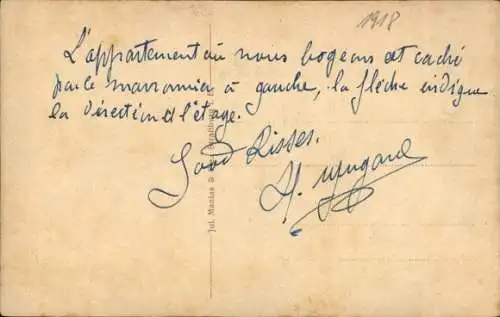 1918
L'appartement où nous logeons est caché
par le marronnier à gauche, la flèche indique
la direction et l'étage.
Good Kisses.
H.
Jul. Manias & Strassburg